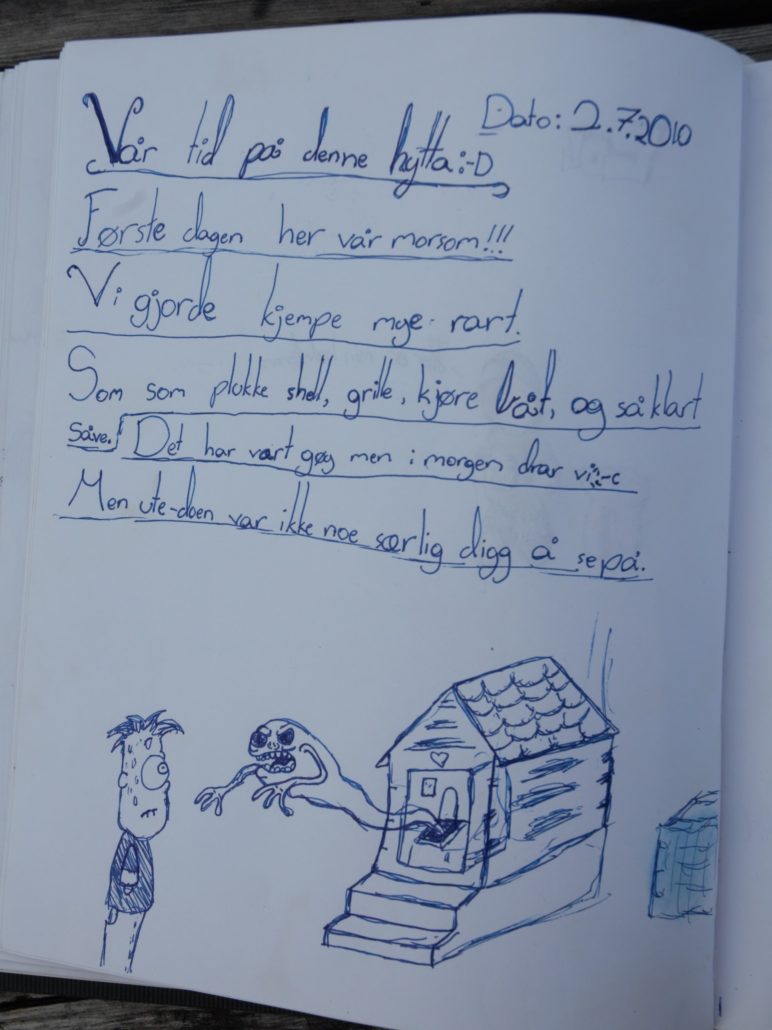 Vår tid på denne hytta:-D
Dato: 2.7.2010
Første dagen her var morsom!!!
Vi gjorde kjempe mye rart.
Som som plukke shell, grille, kjøre båt, og såklart
Såve. Det har vært gøy men i morgen drar vi:-c
Men ute-doen var ikke noe særlig digg å se på.